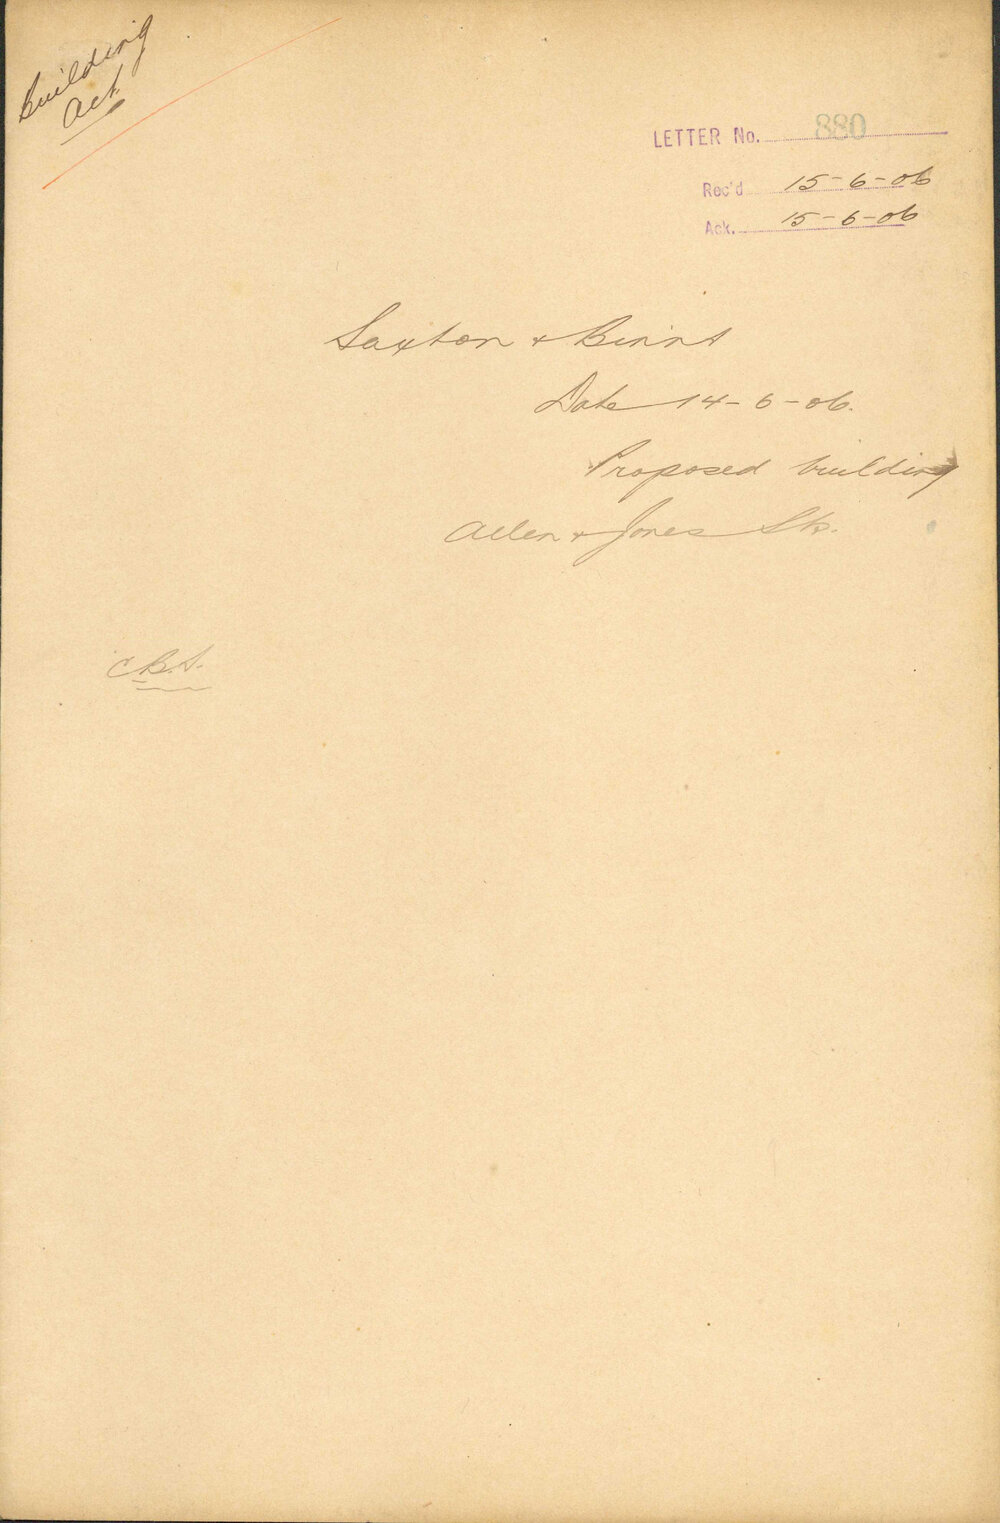 Building
Act
LETTER No. 880
Rec'd 15-6-06
Ack. 15-6-06
Saxton + Binns
Date 14-6-06.
Proposed building
Allen + Jones Sts.
C.B.S.